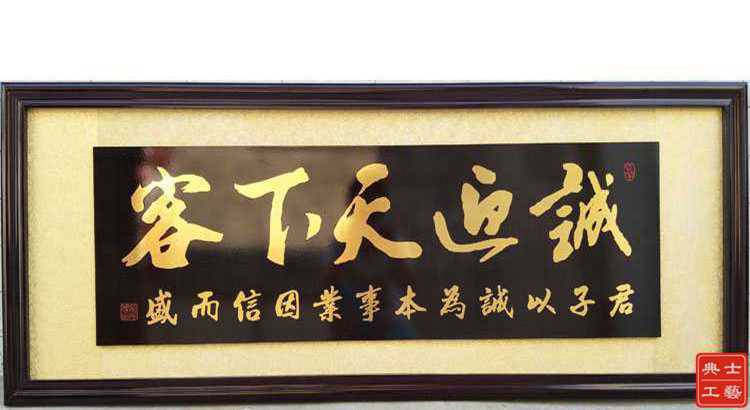 誠迎天下客
君子以誠為本事業因信而盛
典士
工藝